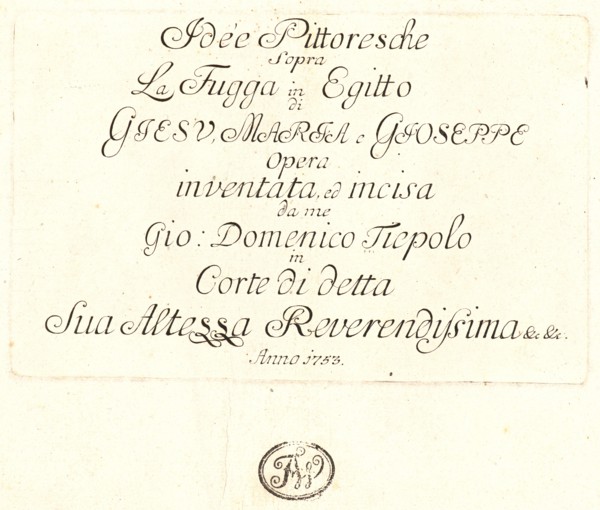 Idée Pittoresche
Sopra
La Fugga in Egitto
di
GIESV, MARIA e GIOSEPPE
Opera
inventata, ed incisa
da me
Gio: Domenico Tiepolo
in
Corte di detta
Sua Altezza Reverendissima &c &c.
Anno 1753.